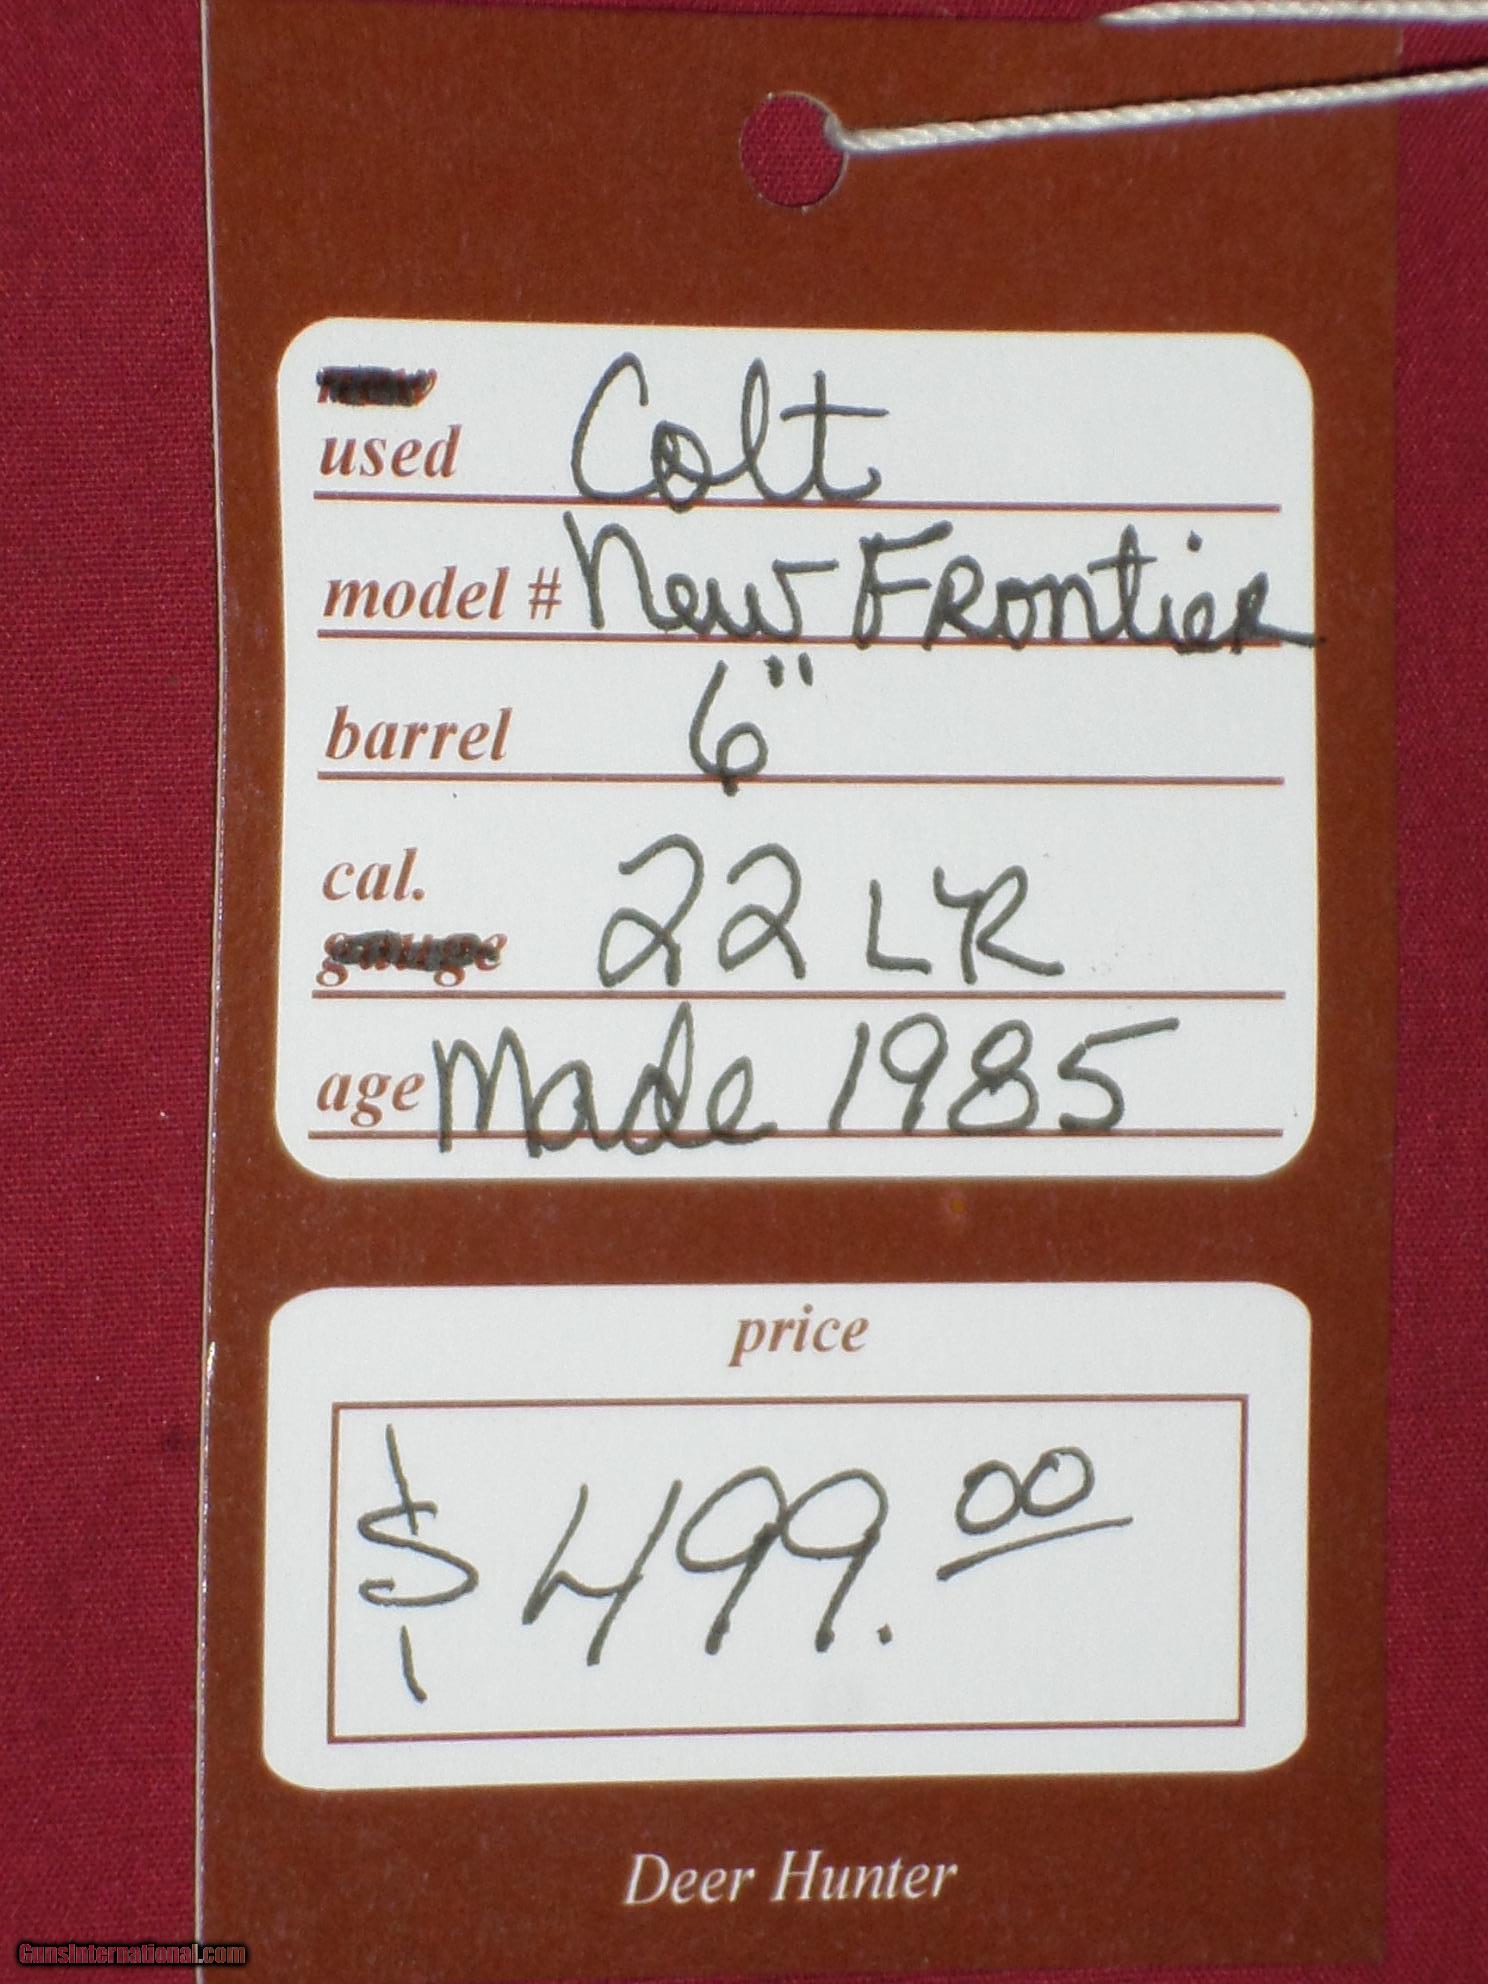 used Colt
model # New Frontier
barrel 6"
cal. 22 LR
gauge
age Made 1985
price
$499.00
Deer Hunter
GunsInternational.com